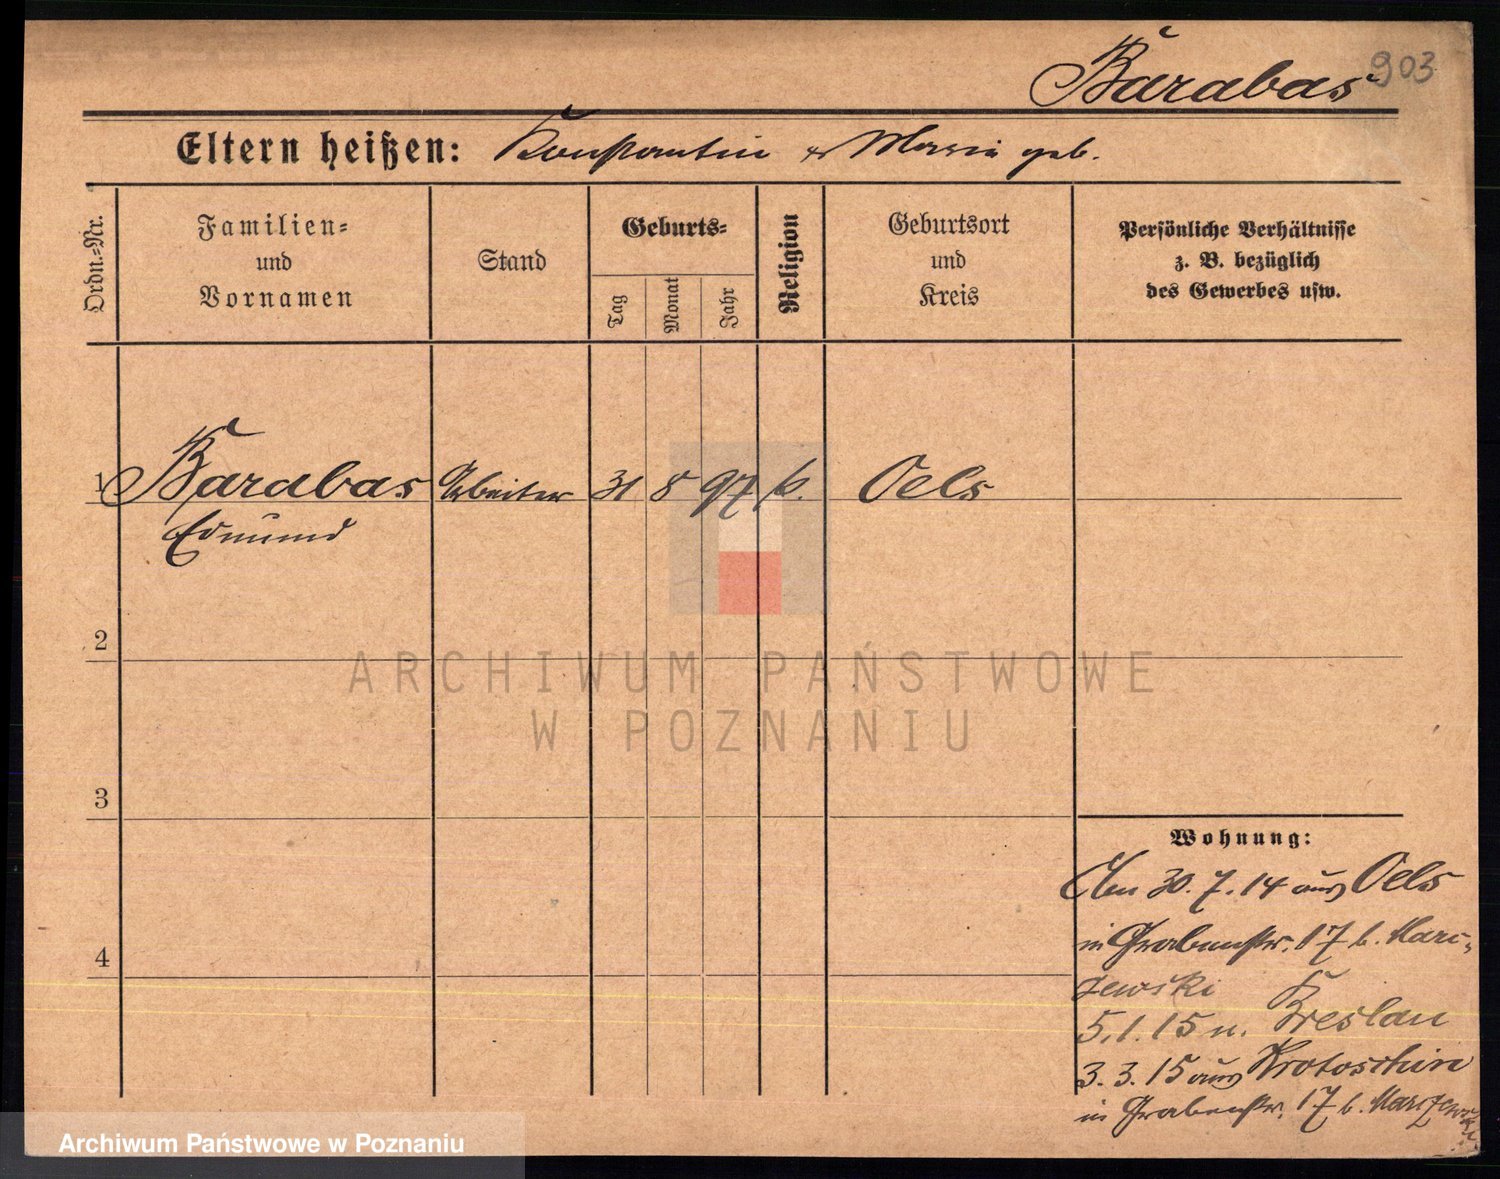 Barabas 903
Eltern heißen: Konstantin & Maria geb.
Ordn.-Nr.
Familien-
und
Vornamen
Stand
Geburts-
Tag
Monat
Jahr
Religion
Geburtsort
und
Kreis
Persönliche Verhältnisse
z. B. bezüglich
des Gewerbes usw.
1 Barabas Arbeiter 31 8 97 k. Oels
Edmund
2
3
4
Wohnung:
Am 30.7.14 aus Oels
in Grabenstr. 17 b. Marc-
zewski
5.1.15 n. Breslau
3.3.15 aus Krotoschin
in Grabenstr. 17 b. Marczewski
ARCHIWUM PAŃSTWOWE
W POZNANIU
Archiwum Państwowe w Poznaniu